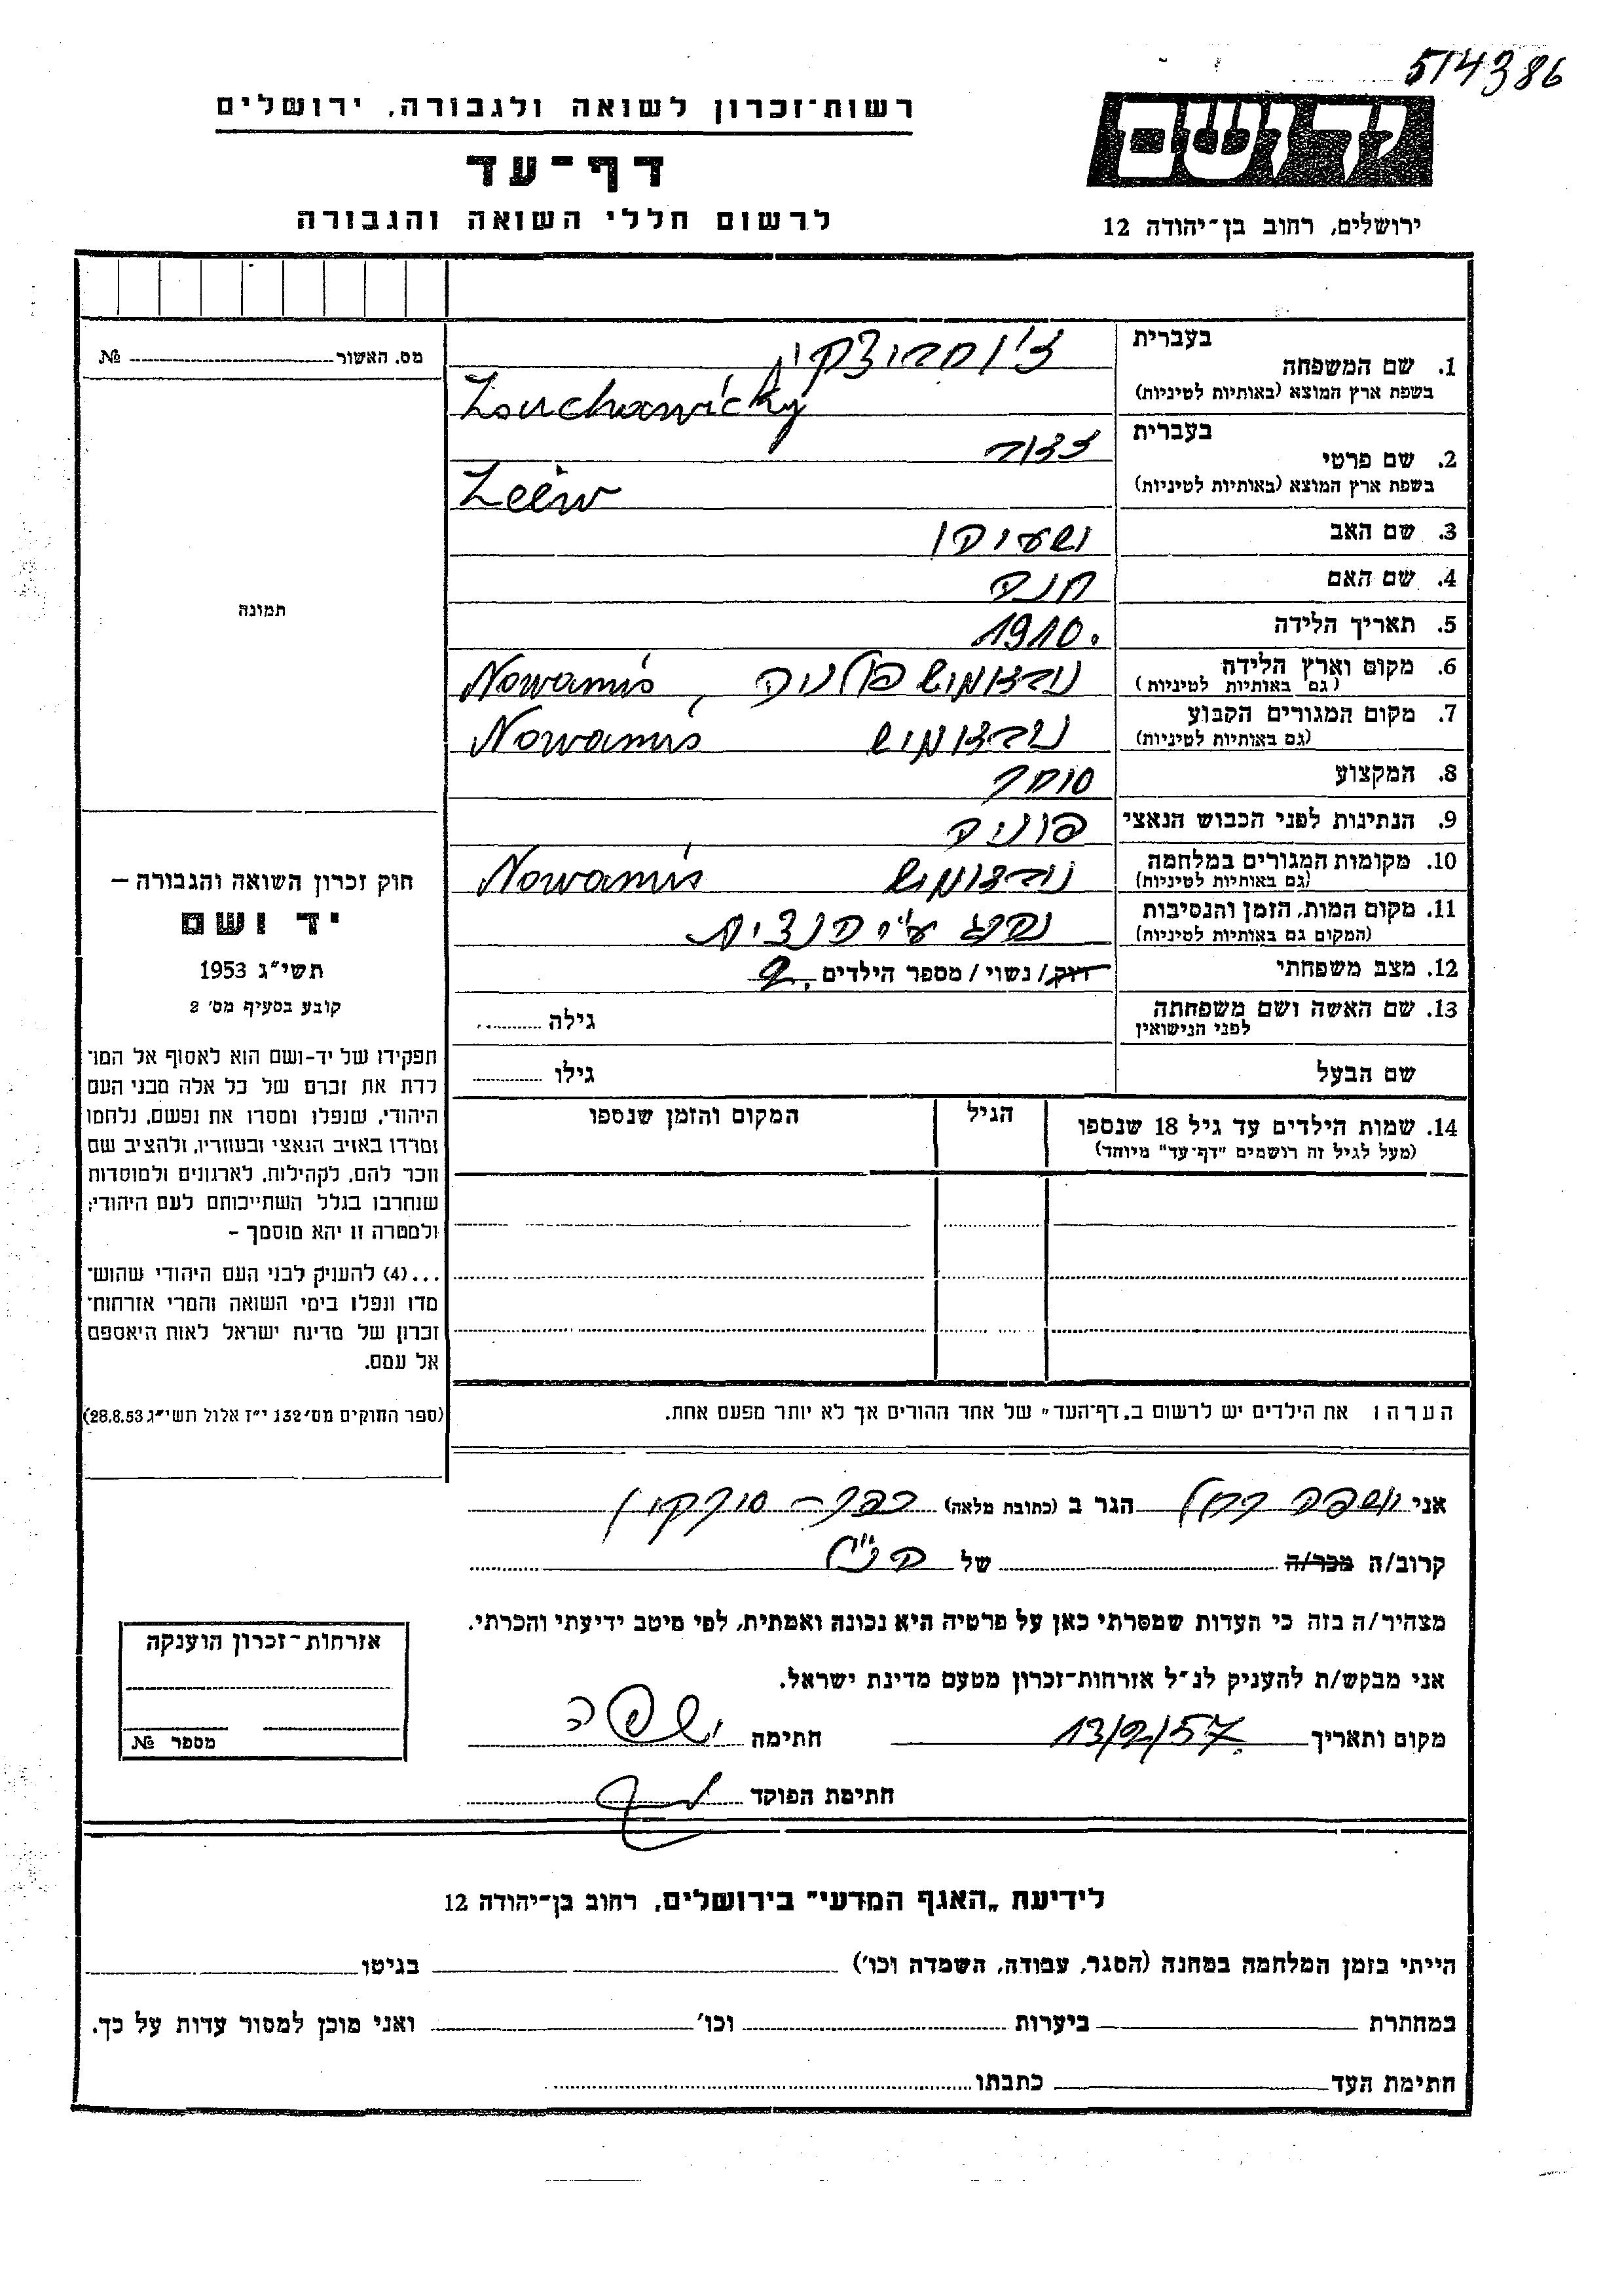 514386
רשות־זכרון לשואה ולגבורה, ירושלים
דף־עד
לרשום חללי השואה והגבורה
יד ושם
ירושלים, רחוב בן־יהודה 12
מס. האשור № 
תמונה
חוק זכרון השואה והגבורה —
יד ושם
תשי״ג 1953
קובע בסעיף מס׳ 2
תפקידו של יד־ושם הוא לאסוף אל המו־
לדת את זכרם של כל אלה מבני העם
היהודי, שנפלו ומסרו את נפשם, נלחמו
ומרדו באויב הנאצי ובעוזריו, ולהציב שם
וזכר להם, לקהילות, לארגונים ולמוסדות
שנחרבו בגלל השתייכותם לעם היהודי;
ולמטרה זו יהא מוסמך —
...(4) להעניק לבני העם היהודי שהוש־
מדו ונפלו בימי השואה והמרי אזרחות־
זכרון של מדינת ישראל לאות היאספם
אל עמם.
(ספר החוקים מס׳ 132 י״ז אלול תשי״ג 28.8.53)
1. שם המשפחה בעברית
בשפת ארץ המוצא (באותיות לטיניות) Zouchawicky
2. שם פרטי בעברית
בשפת ארץ המוצא (באותיות לטיניות) Zeew
3. שם האב
4. שם האם חנה
5. תאריך הלידה 1910.
6. מקום וארץ הלידה
(גם באותיות לטיניות) Nowamiś
7. מקום המגורים הקבוע
(גם באותיות לטיניות) Nowamiś
8. המקצוע סוחר
9. הנתינות לפני הכבוש הנאצי
10. מקומות המגורים במלחמה
(גם באותיות לטיניות) Nowamiś
11. מקום המות, הזמן והנסיבות נהרג ע״י הנצים
(המקום גם באותיות לטיניות)
12. מצב משפחתי רוק/ נשוי / מספר הילדים 2.
13. שם האשה ושם משפחתה
לפני הנישואין גילה
שם הבעל גילו
14. שמות הילדים עד גיל 18 שנספו הגיל המקום והזמן שנספו
(מעל לגיל זה רושמים "דף־עד" מיוחד)
הערה: את הילדים יש לרשום ב„דף־העד״ של אחד ההורים אך לא יותר מפעם אחת.
אני יושפה רחל הגר ב (כתובת מלאה) כפר - סירקין
קרוב/ה מכר/ה של הנ״ל
מצהיר/ה בזה כי העדות שמסרתי כאן על פרטיה היא נכונה ואמתית, לפי מיטב ידיעתי והכרתי.
אני מבקש/ת להעניק לנ״ל אזרחות־זכרון מטעם מדינת ישראל.
מקום ותאריך 13/2/57. חתימה
חתימת הפוקד
אזרחות־זכרון הוענקה
מספר №
לידיעת „האגף המדעי״ בירושלים, רחוב בן־יהודה 12
הייתי בזמן המלחמה במחנה (הסגר, עבודה, השמדה וכו׳) בגיטו
במחתרת ביערות וכו׳ ואני מוכן למסור עדות על כך.
חתימת העד כתבתו